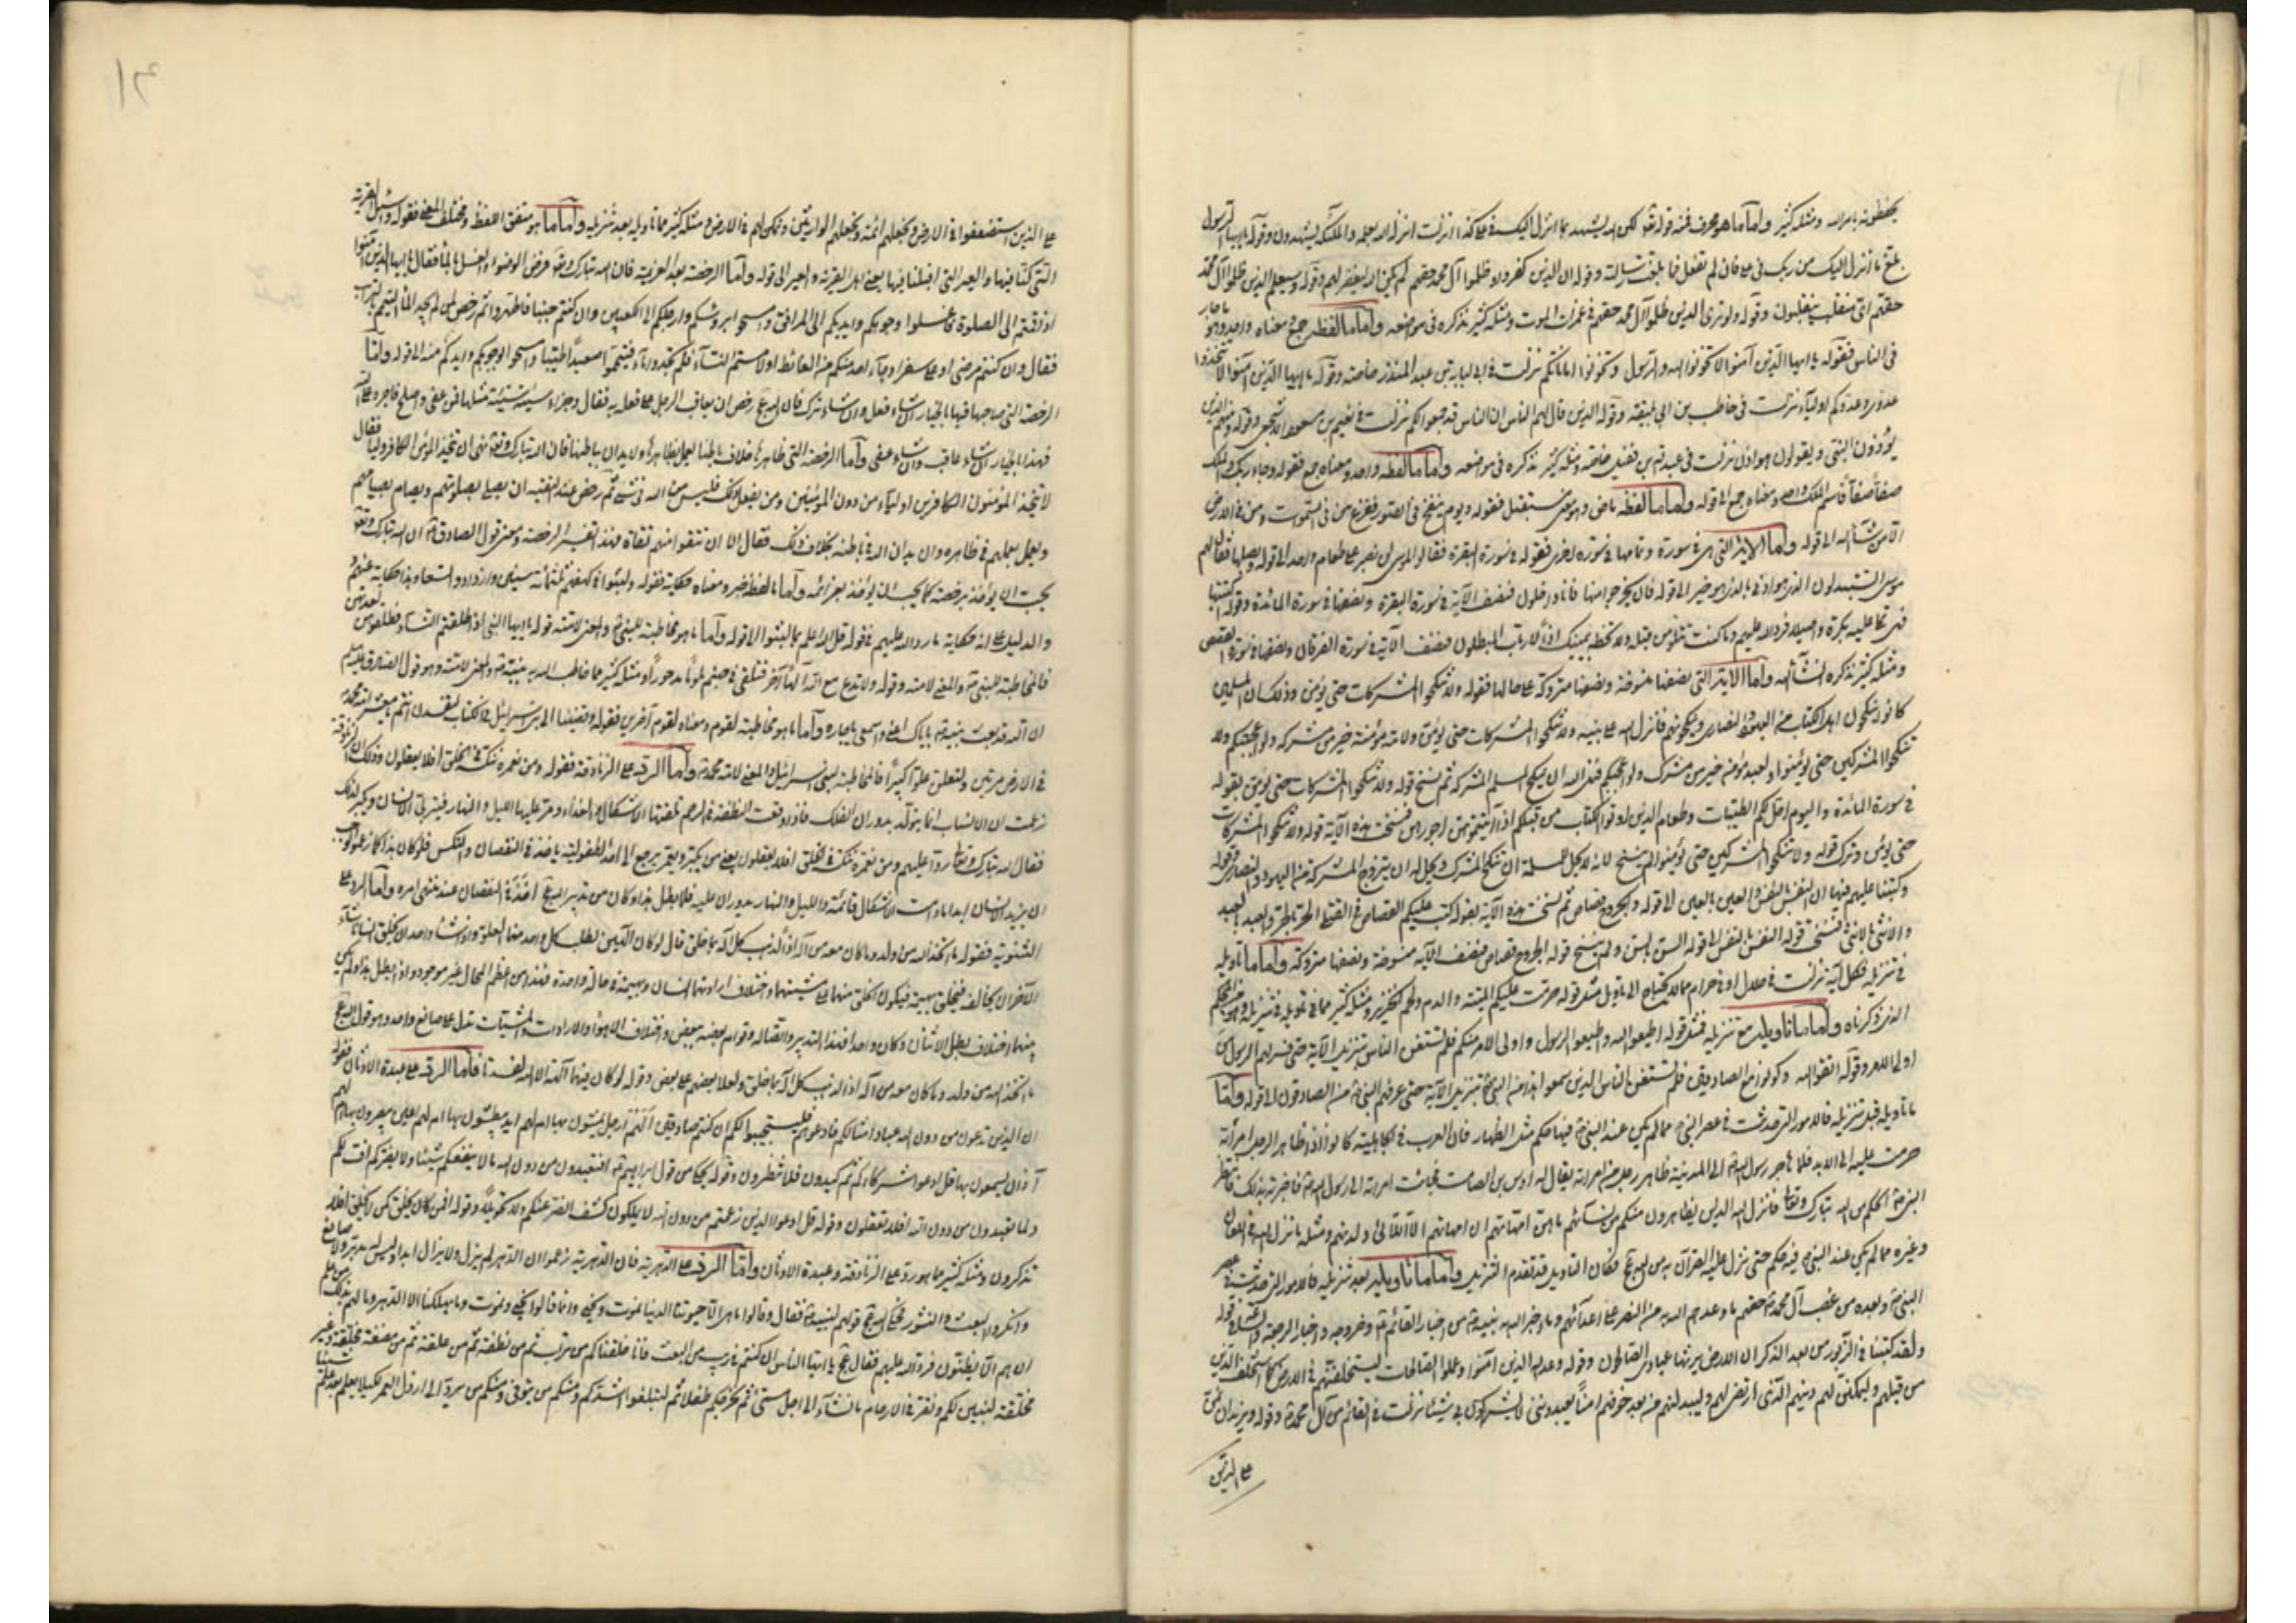 يحفظونه بامر الله ومثله كثير واما ما هو محرف فمنه قوله تعالى لكن الله يشهد بما انزل اليك في علي كذا انزلت انزله بعلمه والملئكة يشهدون وقوله يا ايها الرسول
بلغ ما انزل اليك من ربك في علي فان لم تفعل فما بلغت رسالته وقوله ان الذين كفروا وظلموا آل محمد حقهم لم يكن الله ليغفر لهم وقوله وسيعلم الذين ظلموا آل محمد
حقهم اي منقلب ينقلبون وقوله ولو ترى الذين ظلموا آل محمد حقهم في غمرات الموت ومثله كثير نذكره في مواضعه واما ما لفظه جمع ومعناه واحد وهو ما جاء
في الناس فقوله يا ايها الذين آمنوا لا تخونوا الله والرسول وتخونوا اماناتكم نزلت في ابي لبابة بن عبد المنذر خاصة وقوله يا ايها الذين آمنوا لا تتخذوا
عدوي وعدوكم اولياء نزلت في حاطب بن ابي بلتعة وقوله الذين قال لهم الناس ان الناس قد جمعوا لكم نزلت في نعيم بن مسعود الاشجعي وقوله ومنهم الذين
يؤذون النبي ويقولون هو اذن نزلت في عبد الله بن نفيل خاصة ومثله كثير نذكره في مواضعه واما ما لفظه واحد ومعناه جمع فقوله وجاء ربك والملك
صفاً صفاً فاسم الملك واحد ومعناه جمع الى قوله واما ما لفظه ماض وهو مستقبل فقوله ويوم ينفخ في الصور ففزع من في السموات ومن في الارض
الا من شاء الله الى قوله واما الآية التي هي في سورة وتمامها في سورة اخرى فقوله في سورة البقرة فقالوا لموسى لن نصبر على طعام واحد الى قوله وبصلها فقال لهم
موسى اتستبدلون الذي هو ادنى بالذي هو خير الى قوله فان يخرجوا منها فانا داخلون فنصف الآية في سورة البقرة ونصفها في سورة المائدة وقوله اكتتبها
فهي تملى عليه بكرة واصيلا فرد الله عليهم وما كنت تتلو من قبله ولا تخطه بيمينك اذاً لارتاب المبطلون فنصف الآية في سورة الفرقان ونصفها في سورة القصص
ومثله كثير نذكره انشاء الله واما الآية التي نصفها منسوخة ونصفها متروكة على حالها فقوله ولا تنكحوا المشركات حتى يؤمن وذلك ان المسلمين
كانوا ينكحون اهل الكتاب من اليهود والنصارى وينكحونهم فانزل الله على نبيه ولا تنكحوا المشركات حتى يؤمن ولامة مؤمنة خير من مشركة ولو اعجبتكم ولا
تنكحوا المشركين حتى يؤمنوا ولعبد مؤمن خير من مشرك ولو اعجبكم فنهى الله ان ينكح المسلم المشركة ثم نسخ قوله ولا تنكحوا المشركات حتى يؤمن بقوله
في سورة المائدة واليوم احل لكم الطيبات وطعام الذين اوتوا الكتاب من قبلكم اذا آتيتموهن اجورهن فنسخت هذه الآية قوله ولا تنكحوا المشركات
حتى يؤمن وترك قوله ولا تنكحوا المشركين حتى يؤمنوا لم ينسخ لانه لا يحل للمسلمة ان تنكح المشرك ويحل له ان يتزوج المشركة من اليهود والنصارى وقوله
وكتبنا عليهم فيها ان النفس بالنفس والعين بالعين الى قوله والجروح قصاص ثم نسخت هذه الآية بقوله كتب عليكم القصاص في القتلى الحر بالحر والعبد بالعبد
والانثى بالانثى فنسخت قوله النفس بالنفس الى قوله السن بالسن ولم ينسخ قوله الجروح قصاص فنصف الآية منسوخة ونصفها متروكة واما ما تاويله
في تنزيله فكل آية نزلت في حلال او في حرام مما لا يحتاج الى تاويل مثل قوله حرمت عليكم الميتة والدم ولحم الخنزير ومثله كثير مما تاويله في تنزيله وهو المحكم
الذي ذكرناه واما ما تاويله مع تنزيله فمثل قوله اطيعوا الله واطيعوا الرسول واولى الامر منكم فلم تستغن الناس بتنزيل الآية حتى فسر لهم الرسول من
اولى الامر وقوله اتقوا الله وكونوا مع الصادقين فلم تستغن الناس الذين سمعوا هذا من النبي بتنزيل الآية حتى عرفهم النبي من الصادقون الى قوله واما
ما تاويله قبل تنزيله فالامور التي حدثت في عصر النبي مما لم يكن عند النبي فيها حكم مثل الظهار فان العرب في الجاهلية كانوا اذا ظاهر الرجل امراته
حرمت عليه الى الابد فلما هاجر رسول الله الى المدينة ظاهر رجل من امراته يقال له اوس بن الصامت فجاءت امراته الى رسول الله فاخبرته بذلك فانتظر
النبي الحكم من الله تبارك وتعالى فانزل الله الذين يظاهرون منكم من نسائهم ما هن امهاتهم ان امهاتهم الا اللائي ولدنهم ومثله ما نزل في اللعان
وغيره مما لم يكن عند النبي فيه حكم حتى نزل عليه القرآن به من الله فكان التاويل قد تقدم التنزيل واما ما تاويله بعد تنزيله فالامور التي حدثت في عصر
النبي وبعده من غصب آل محمد حقهم وما وعدهم الله به من النصر على اعدائهم وما اخبر الله به نبيه من اخبار القائم وخروجه واخبار الرجعة والساعة في قوله
ولقد كتبنا في الزبور من بعد الذكر ان الارض يرثها عبادي الصالحون وقوله وعد الله الذين آمنوا وعملوا الصالحات ليستخلفنهم في الارض كما استخلف الذين
من قبلهم وليمكنن لهم دينهم الذي ارتضى لهم وليبدلنهم من بعد خوفهم امناً يعبدونني لا يشركون بي شيئا نزلت في القائم من آل محمد وقوله ونريد ان نمن
على الذين
١٢
على الذين استضعفوا في الارض ونجعلهم ائمة ونجعلهم الوارثين ونمكن لهم في الارض ومثله كثير مما تاويله بعد تنزيله واما ما هو متفق اللفظ ومختلف المعنى فقوله واسئل القرية
التي كنا فيها والعير التي اقبلنا فيها يعني اهل القرية واهل العير الى قوله واما الرخصة بعد العزيمة فان الله تبارك وتعالى فرض الوضوء والغسل بالماء فقال يا ايها الذين آمنوا
اذا قمتم الى الصلوة فاغسلوا وجوهكم وايديكم الى المرافق وامسحوا برؤسكم وارجلكم الى الكعبين وان كنتم جنبا فاطهروا ثم رخص لمن لم يجد الماء التيمم بالتراب
فقال وان كنتم مرضى او على سفر او جاء احد منكم من الغائط او لامستم النساء فلم تجدوا ماء فتيمموا صعيداً طيبا وامسحوا بوجوهكم وايديكم منه الى قوله واما
الرخصة التي صاحبها فيها بالخيار ان شاء فعل وان شاء ترك فان الله رخص ان يعاقب الرجل على فعله به فقال وجزاء سيئة سيئة مثلها فمن عفى واصلح فاجره على الله
فهذا بالخيار ان شاء عاقب وان شاء عفى واما الرخصة التي ظاهرها خلاف باطنها يعمل بظاهرها ولا يدان بباطنها فان الله تبارك وتعالى نهى ان يتخذ المؤمن الكافر وليا فقال
لا يتخذ المؤمنون الكافرين اولياء من دون المؤمنين ومن يفعل ذلك فليس من الله في شيء ثم رخص عند التقية ان يصلي بصلوتهم ويصوم بصيامهم
ويعمل بعملهم في ظاهره وان يدين الله في باطنه بخلاف ذلك فقال الا ان تتقوا منهم تقاة فهذا تفسير الرخصة ومعنى قول الصادق ان الله تبارك وتعالى
يحب ان يؤخذ برخصه كما يحب ان يؤخذ بعزائمه واما ما لفظه خبر ومعناه حكاية فقوله ولبثوا في كهفهم ثلثمائة سنين وازدادوا تسعا وهذا حكاية عنهم
والدليل على انه حكاية ما رد الله عليهم في قوله قل الله اعلم بما لبثوا الى قوله واما ما هو مخاطبة للنبي والمعنى لامته قوله يا ايها النبي اذا طلقتم النساء فطلقوهن لعدتهن
فالمخاطبة للنبي والمعنى لامته وقوله ولا تدع مع الله آلهاً آخر فتلقى في جهنم ملوماً مدحوراً ومثله كثير مما خاطب الله به نبيه والمعنى لامته وهو قول الصادق
ان الله بعث نبيه باياك اعني واسمعي يا جاره واما ما هو مخاطبة لقوم ومعناه لقوم آخرين فقوله وقضينا الى بني اسرائيل في الكتاب لتفسدن انتم يا معشر امة محمد
في الارض مرتين ولتعلن علواً كبيراً فالمخاطبة لبني اسرائيل والمعنى لامة محمد واما الرد على الزنادقة فقوله ومن نعمره ننكسه في الخلق افلا يعقلون وذلك ان الزنادقة
زعمت ان الانسان انما يتولد بدوران الفلك فاذا وقعت النطفة في الرحم تلقتها الاشكال والغذاء ومر عليها الليل والنهار فيتربى الانسان ويكبر لذلك
فقال الله تبارك وتعالى ردا عليهم ومن نعمره ننكسه في الخلق افلا يعقلون يعني من يكبر ويعمر يرجع الى حد الطفولية ياخذ في النقصان والنكس فلو كان هذا كما زعموا لوجب
ان يزيد الانسان ابدا ما دامت الاشكال قائمة والليل والنهار يدوران عليه فلما بطل هذا وكان من تدبير الله اخذ في النقصان عند منتهى امره واما الرد على
الثنوية فقوله ما اتخذ الله من ولد وما كان معه من آله اذاً لذهب كل آله بما خلق قال لو كان آلهين لطلب كل واحد منهما العلو واذا شاء واحد ان يخلق انسانا شاء
الآخر ان يخالفه فيخلق بهيمة فيكون الخلق منهما على مشيتهما واختلاف ارادتهما انسان وبهيمة في حالة واحدة فهذا من اعظم المحال غير موجود واذا بطل هذا ولم يكن
بينهما اختلاف بطل الاثنان وكان واحدا فهذا التدبير واتصاله وقوام بعضه ببعض واختلاف الاهواء والارادات والمشيئات تدل على صانع واحد وهو قول الله
ما اتخذ الله من ولد وما كان معه من آله اذا لذهب كل آله بما خلق ولعلا بعضهم على بعض وقوله لو كان فيهما آلهة الا الله لفسدتا واما الرد على عبدة الاوثان فقوله
ان الذين تدعون من دون الله عباد امثالكم فادعوهم فليستجيبوا لكم ان كنتم صادقين الهم ارجل يمشون بها ام لهم ايد يبطشون بها ام لهم اعين يبصرون بها ام لهم
آذان يسمعون بها قل ادعوا شركاءكم ثم كيدون فلا تنظرون وقوله يحكي من قول ابراهيم افتعبدون من دون الله ما لا ينفعكم شيئا ولا يضركم اف لكم
ولما تعبدون من دون الله افلا تعقلون وقوله قل ادعوا الذين زعمتم من دون الله لا يملكون كشف الضر عنكم ولا تحويلاً وقوله افمن كان يخلق كمن لا يخلق افلا
تذكرون ومثله كثير مما هو رد على الزنادقة وعبدة الاوثان واما الرد على الدهرية فان الدهرية زعموا ان الدهر لم يزل ولا يزال ابدا وليس له مدبر ولا صانع
وانكروا البعث والنشور فحكى الله قولهم لنبيه فقال وقالوا ما هي الا حيوتنا الدنيا نموت ونحيى وانما قالوا نحيى ونموت وما يهلكنا الا الدهر وما لهم بذلك من علم
ان هم الا يظنون فرد الله عليهم فقال يا ايها الناس ان كنتم في ريب من البعث فانا خلقناكم من تراب ثم من نطفة ثم من علقة ثم من مضغة مخلقة وغير
مخلقة لنبين لكم ونقر في الارحام ما نشاء الى اجل مسمى ثم نخرجكم طفلا ثم لتبلغوا اشدكم ومنكم من يتوفى ومنكم من يرد الى ارذل العمر لكيلا يعلم بعد علم شيئا